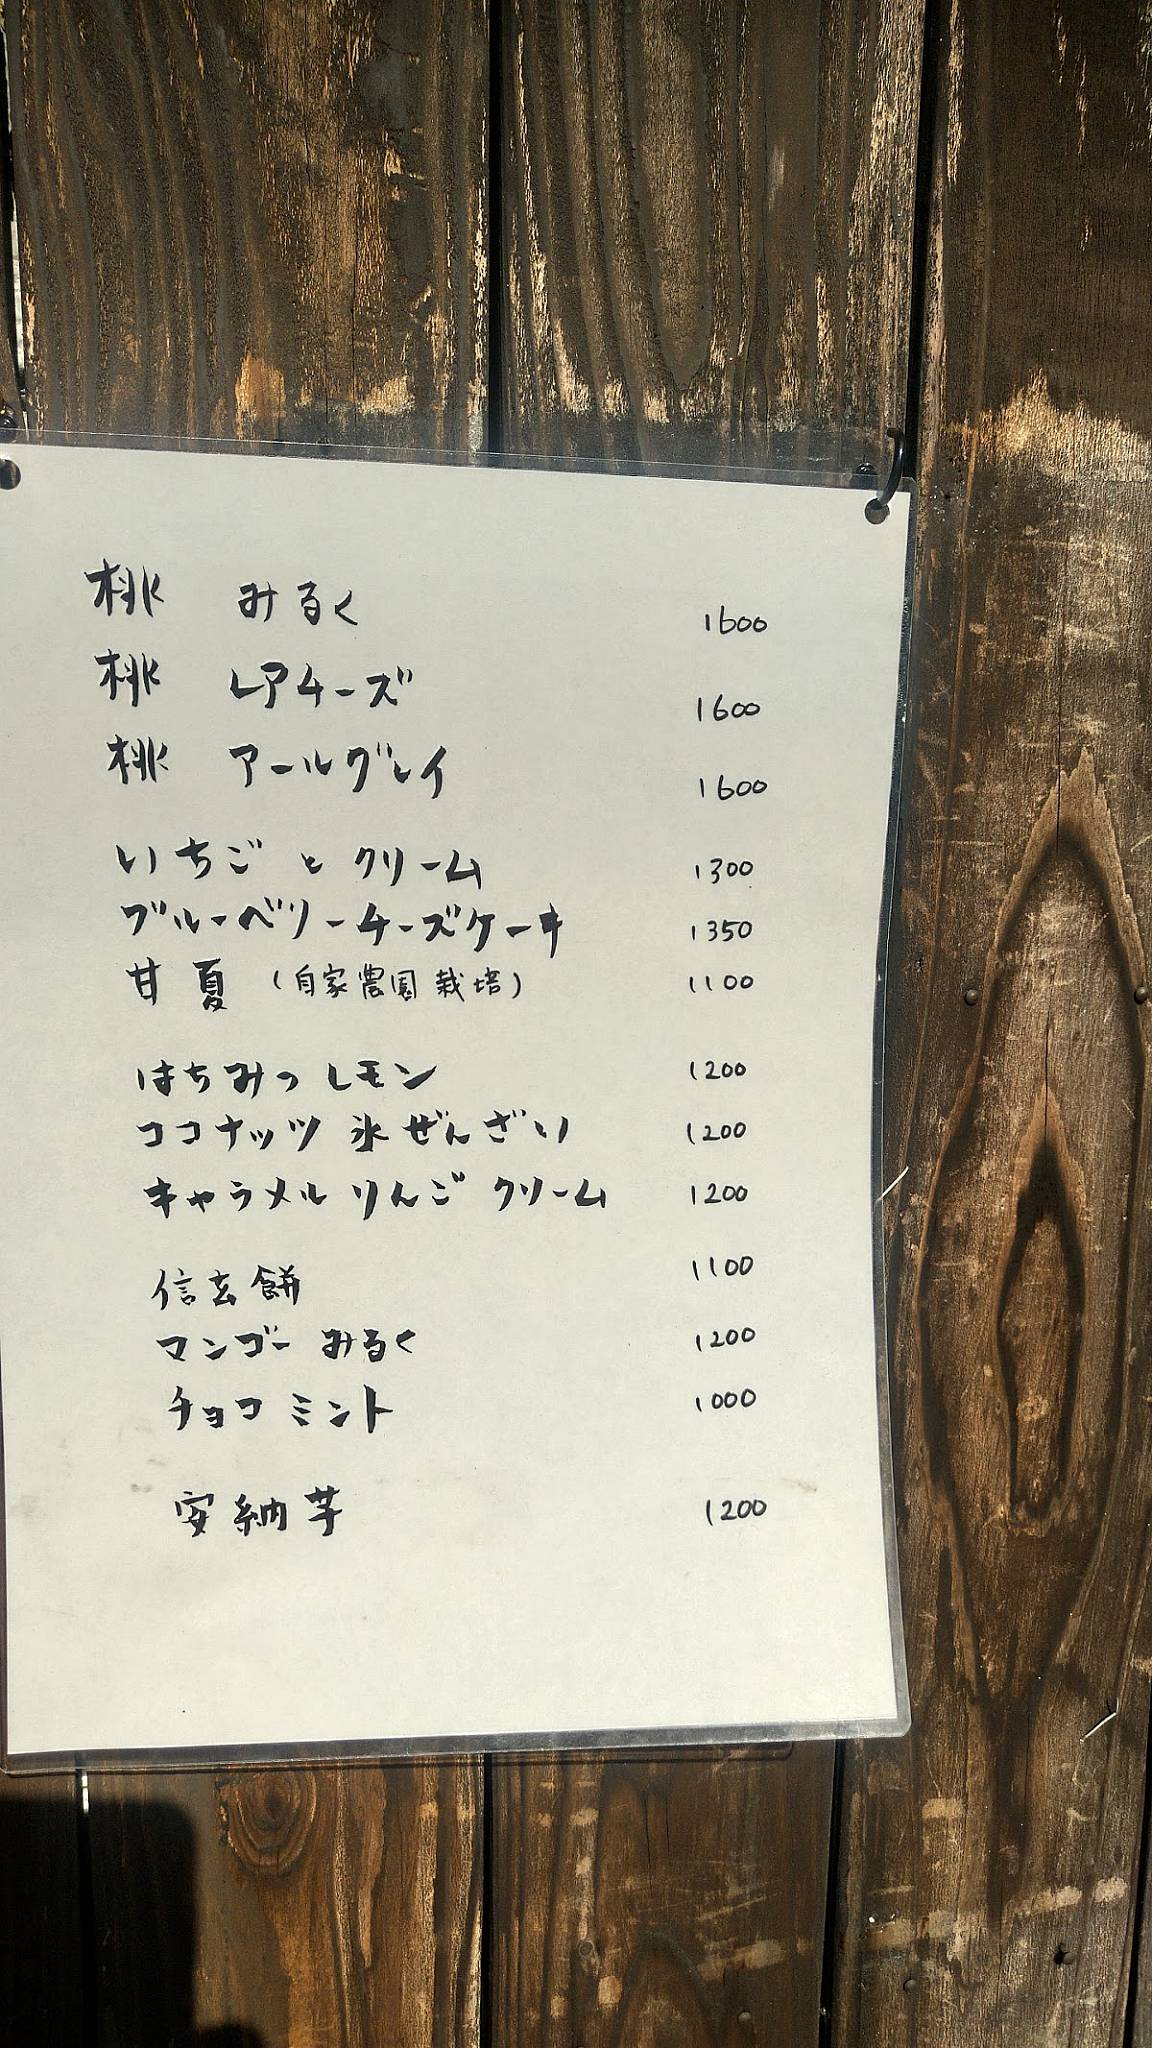 桃 みるく 1600
桃 レアチーズ 1600
桃 アールグレイ 1600
いちごとクリーム 1300
ブルーベリーチーズケーキ 1350
甘夏（自家農園栽培） 1100
はちみつレモン 1200
ココナッツ氷ぜんざい 1200
キャラメルりんごクリーム 1200
信玄餅 1100
マンゴーみるく 1200
チョコミント 1000
安納芋 1200